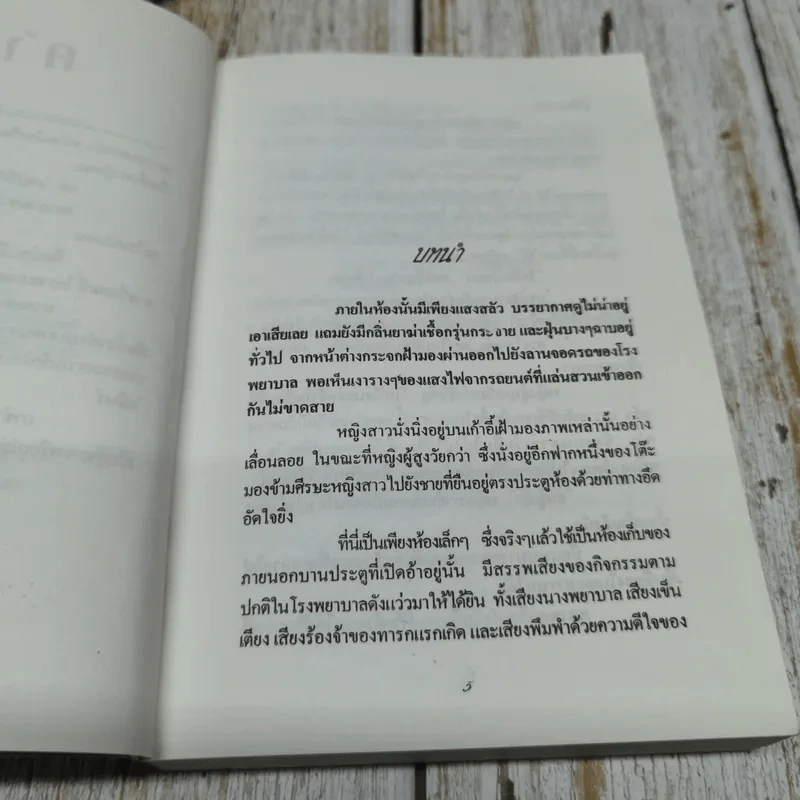 บทนำ
ภายในห้องนั้นมีเพียงแสงสลัว บรรยากาศดูไม่น่าอยู่
เอาเสียเลย แถมยังมีกลิ่นยาฆ่าเชื้อกรุ่นกระจาย และฝุ่นบางๆฉาบอยู่
ทั่วไป จากหน้าต่างกระจกฝ้ามองผ่านออกไปยังลานจอดรถของโรง
พยาบาล พอเห็นเงารางๆของแสงไฟจากรถยนต์ที่แล่นสวนเข้าออก
กันไม่ขาดสาย
หญิงสาวนั่งนิ่งอยู่บนเก้าอี้เฝ้ามองภาพเหล่านั้นอย่าง
เลื่อนลอย ในขณะที่หญิงผู้สูงวัยกว่า ซึ่งนั่งอยู่อีกฟากหนึ่งของโต๊ะ
มองข้ามศีรษะหญิงสาวไปยังชายที่ยืนอยู่ตรงประตูห้องด้วยท่าทางอึด
อัดใจยิ่ง
ที่นี่เป็นเพียงห้องเล็กๆ ซึ่งจริงๆแล้วใช้เป็นห้องเก็บของ
ภายนอกบานประตูที่เปิดอ้าอยู่นั้น มีสรรพเสียงของกิจกรรมตาม
ปกติในโรงพยาบาลดังแว่วมาให้ได้ยิน ทั้งเสียงนางพยาบาล เสียงเข็น
เตียง เสียงร้องจ้าของทารกแรกเกิด และเสียงพึมพำด้วยความดีใจของ
5